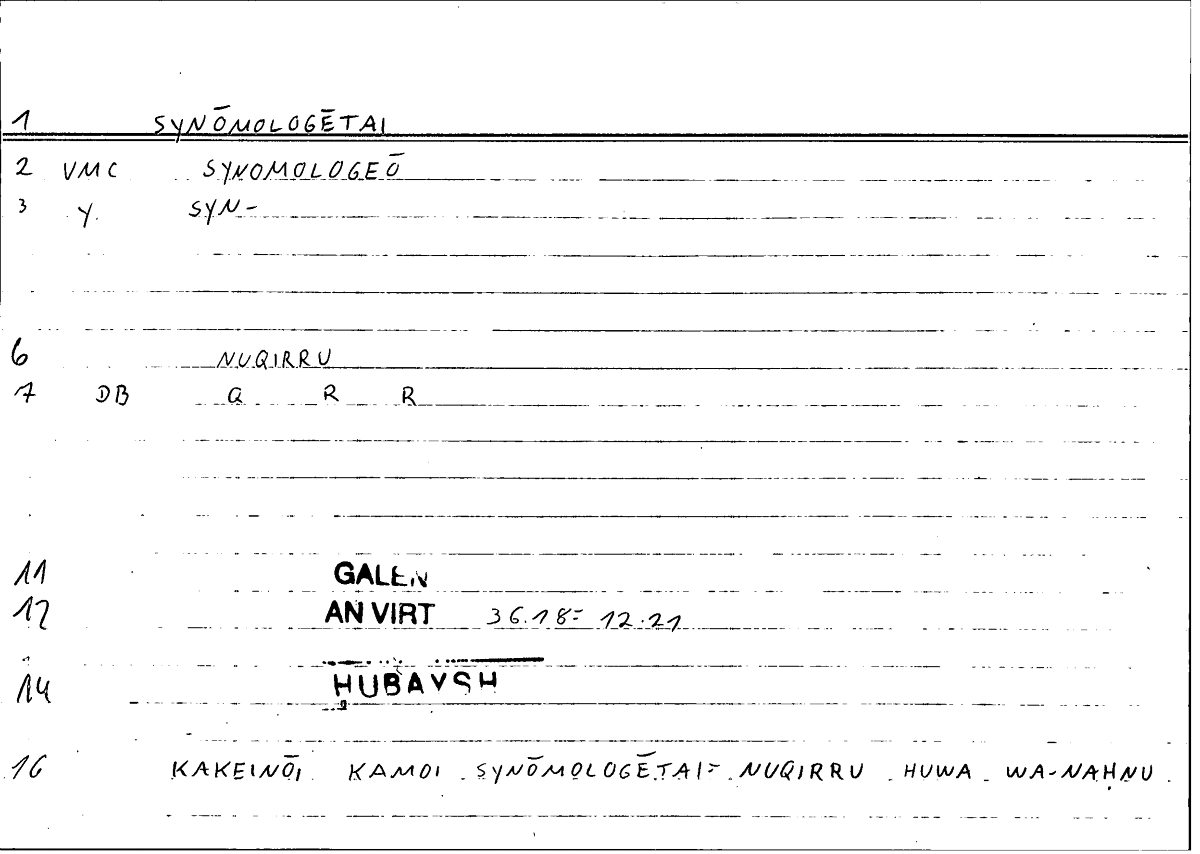 1 SYNŌMOLOGĒTAI
2 VMC SYNOMOLOGEŌ
3 Y. SYN-
6 NUQIRRU
7 DB Q R R
11 GALEN
12 AN VIRT 36.18= 12.21
14 ḤUBAYSH
16 KAKEINŌI KAMOI SYNŌMOLOGĒTAI= NUQIRRU HUWA WA-NAḤNU.